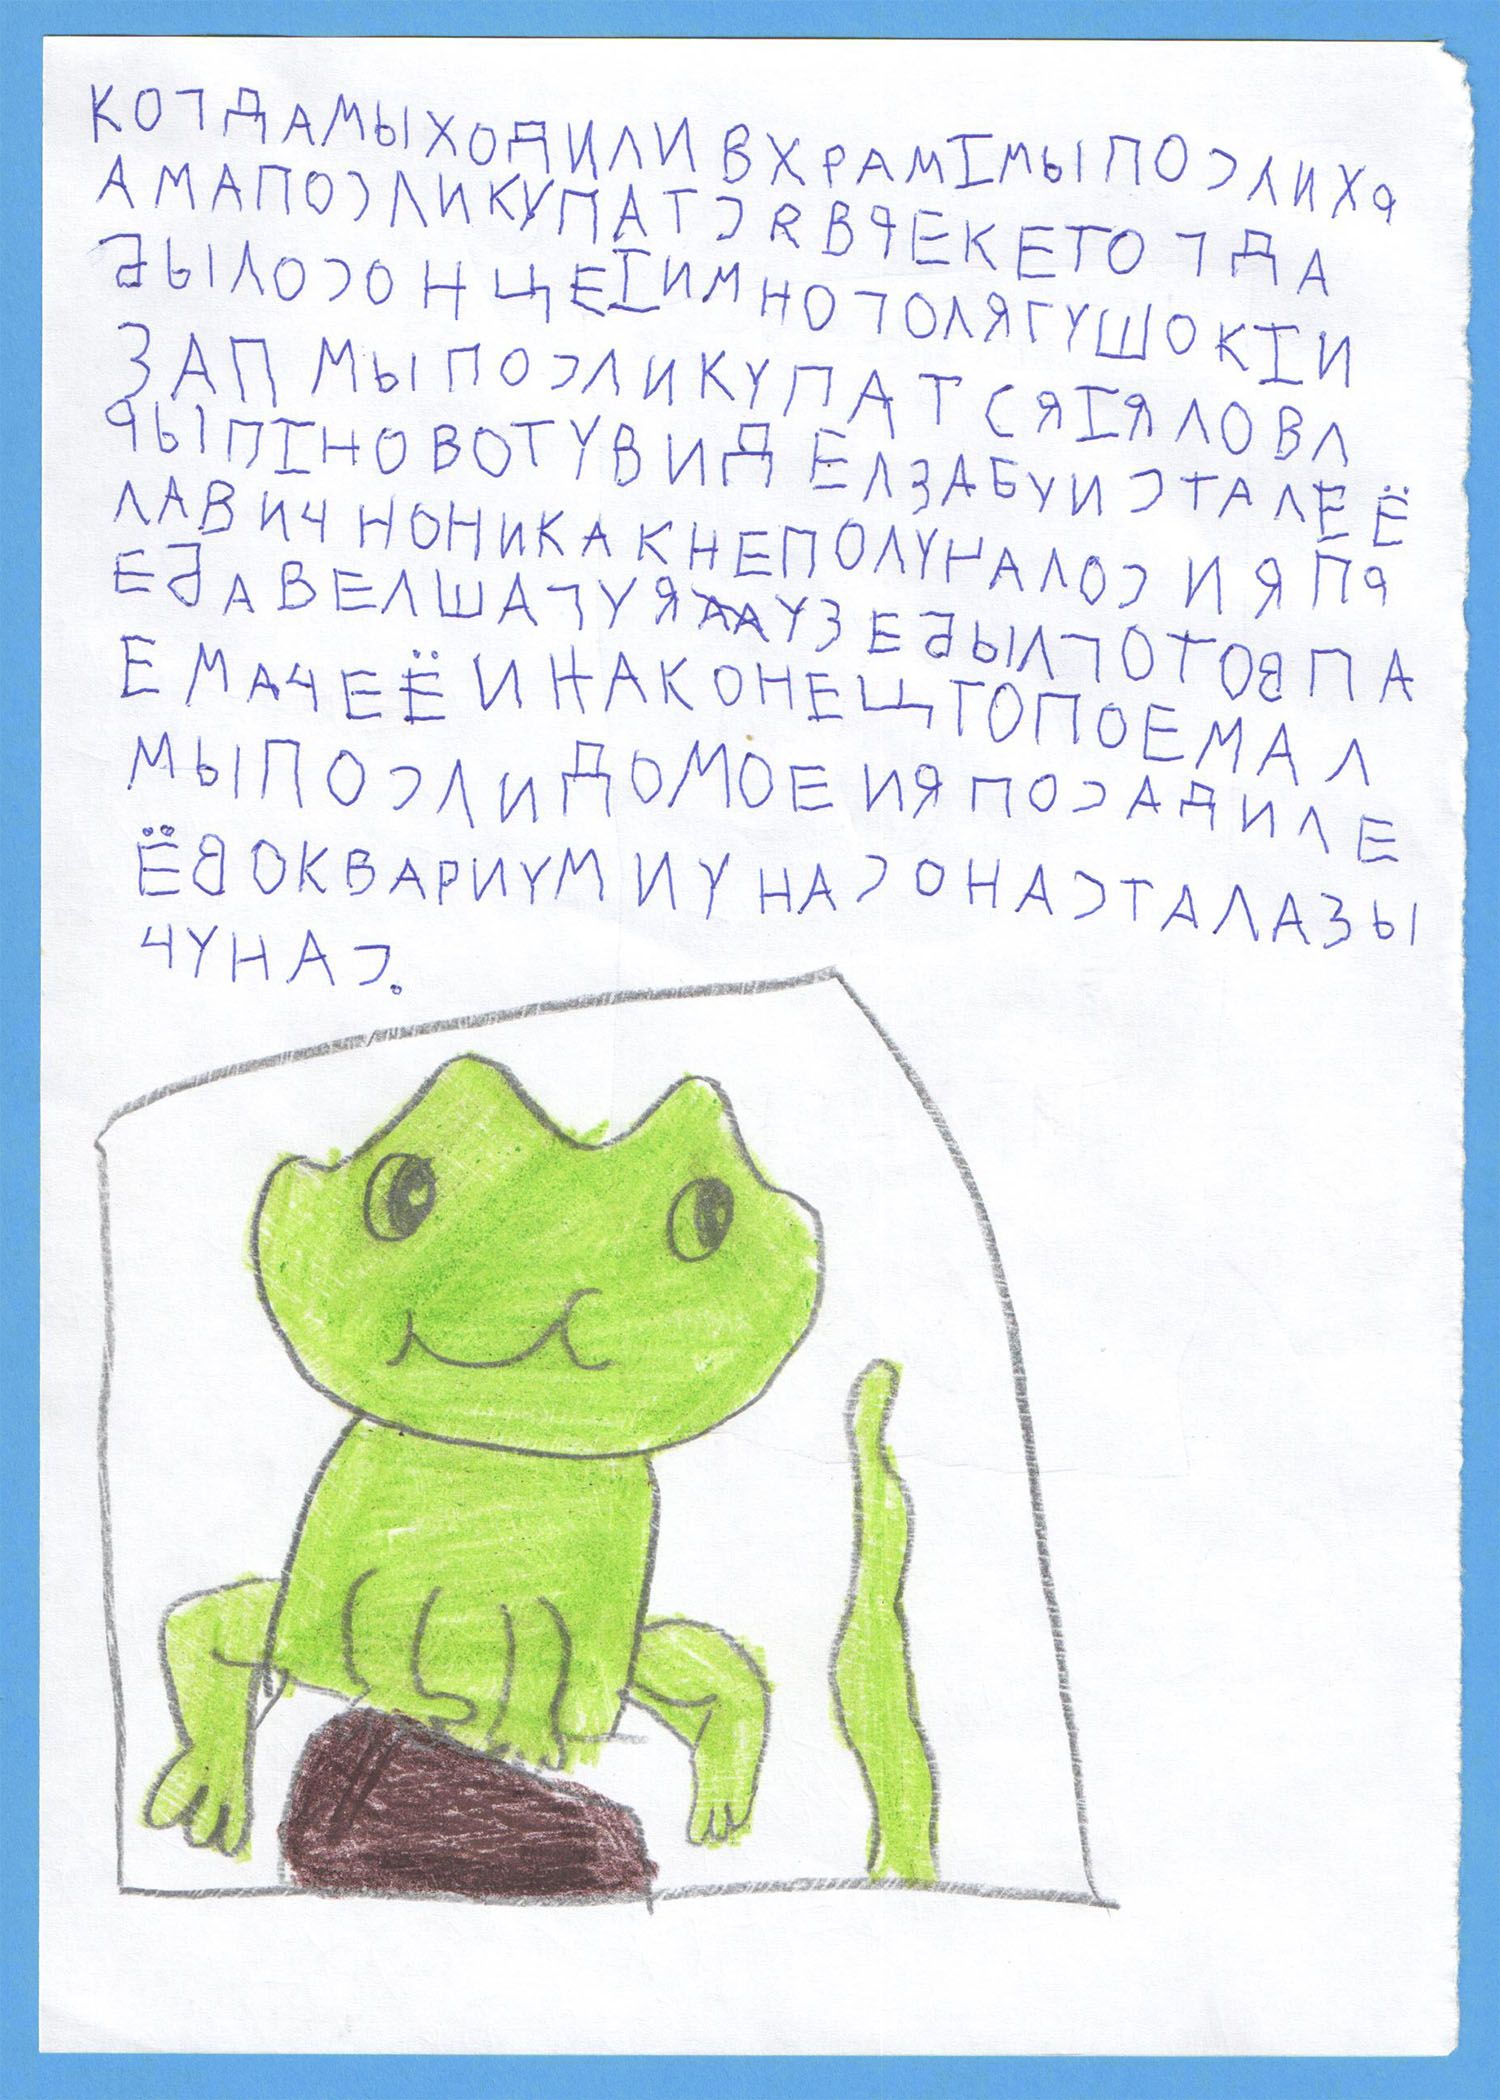 КОГДАМЫХОДИЛИВХРАМІМЫПОСЛИХР
АМАПОСЛИКУПАТСЯВРЕКЕТОГДА
БЫЛОСОНЩЕІИМНОГОЛЯГУШОКІИ
ЗАПМЫПОСЛИКУПАТСЯІЯЛОВЛ
РЫПІНОВОТУВИДЕЛЗАБУИСТАЛЕЁ
ЛАВИЧНОНИКАКНЕПОЛУНАЛОСИЯПР
ЕБАВЕЛШАГУЯУЗЕБЫЛГОТОВПА
ЕМАЧЕЁИНАКОНЕЩТОПОЕМАЛ
МЫПОСЛИДОМОЕИЯПОСАДИЛЕ
ЁВОКВАРИУМИУНАСОНАСТАЛАЗЫ
ЧУНАС.